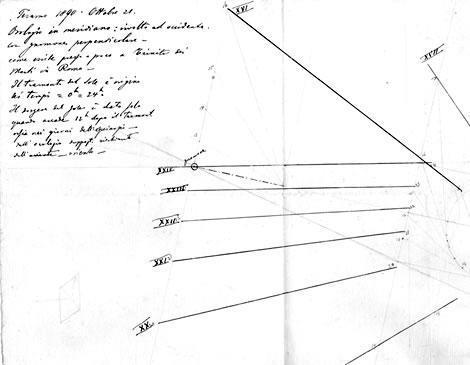 Teramo 1890 - Ottobre 21.
Orologio in meridiano: rivolto ad occidente
con gnomone perpendicolare -
come esiste presso a poco a Trinità dei
Monti in Roma -
Il Tramonto del Sole è origine
dei tempi = 0h = 24h.
Il sorgere del Sole è dato solo
quando accade 12h dopo il tramont
ossia nei giorni dell'Equinozio -
dell'orologio
dell'oriente - oriente -
XVI
XVII
gnomone
XXIV
XXIII
XXII
XXI
XX